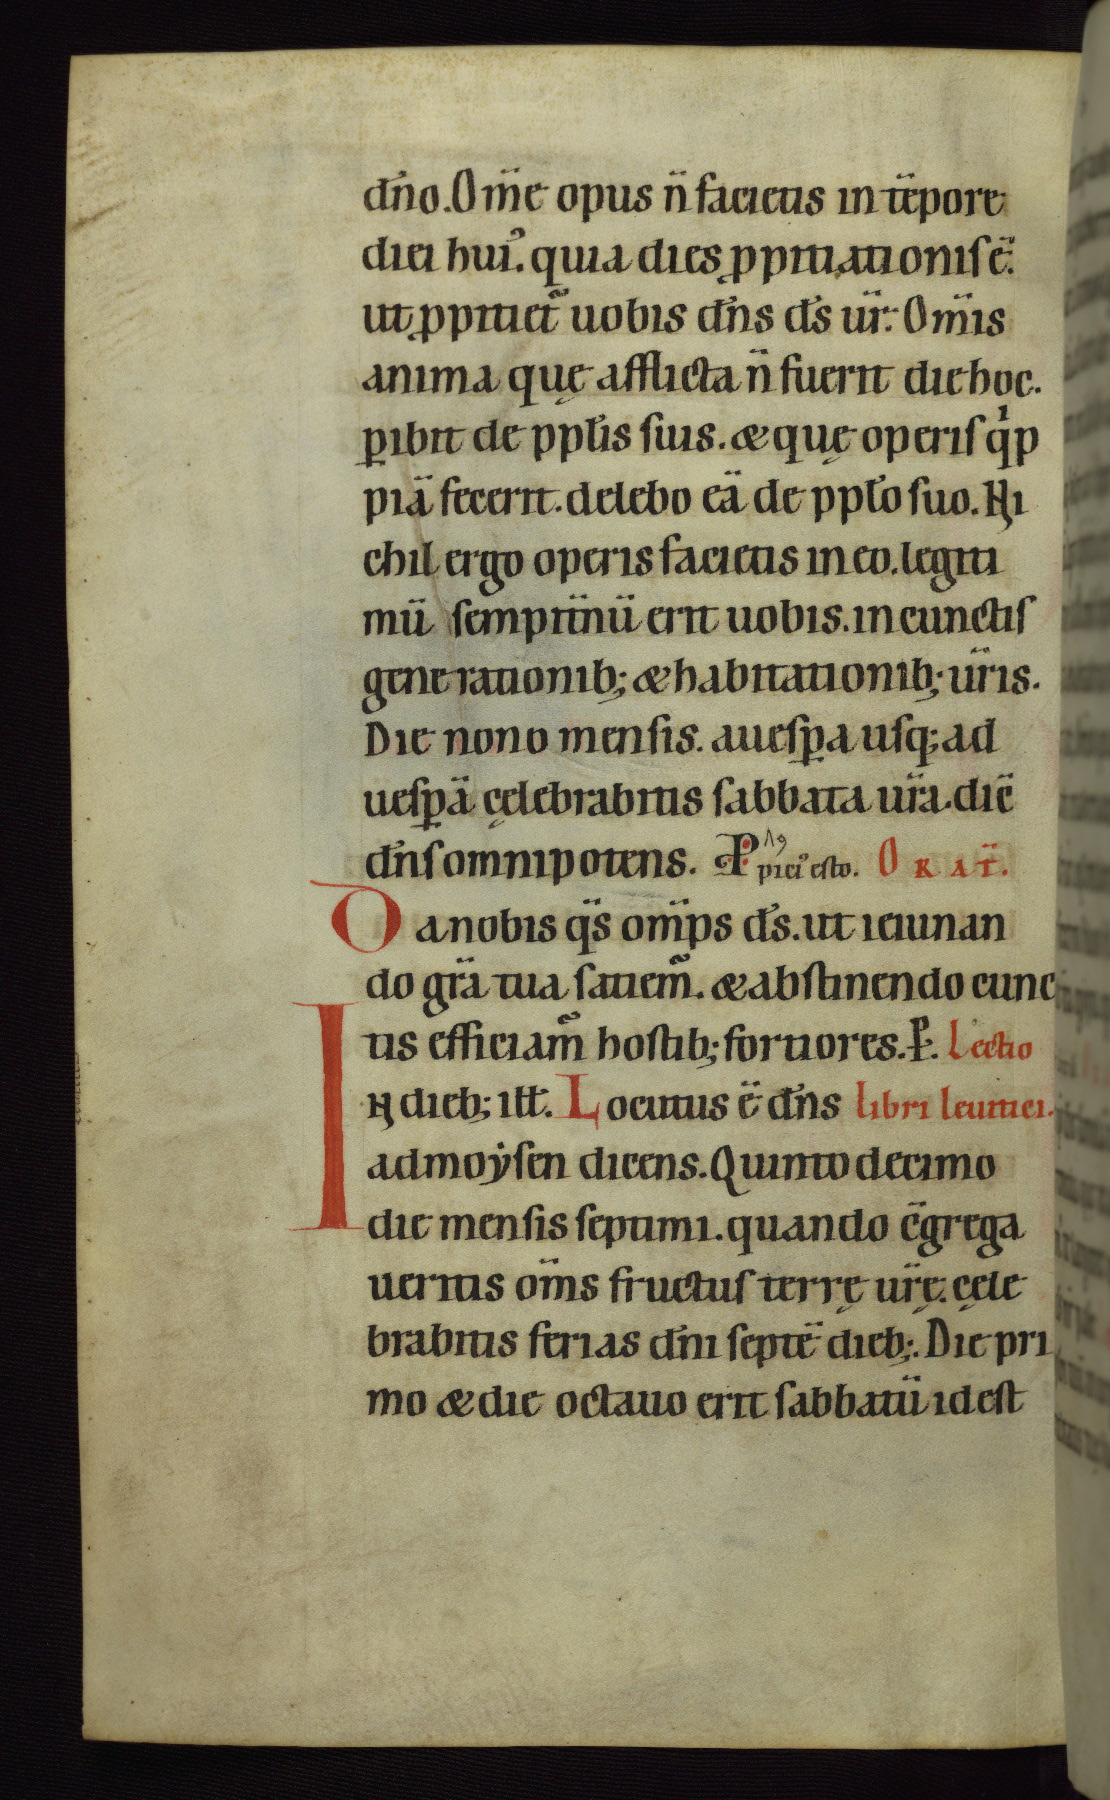 dn̄o. Om̄e opus n̄ facietis in tēpore
diei hui᾽. quia dies ꝓpitiationis ē.
ut ꝓpitiet᷑ uobis dn̄s ds̄ ur̄. Om̄is
anima quę afflicta n̄ fuerit die hoc.
ꝑibit de ppl̄is suis. & quę operis qͥp
piā fecerit. delebo eā de ppl̄o suo. Ni
chil ergo operis facietis in eo. legiti
mū sempit̄nū erit uobis. in cunctis
generationib; & habitationib; ur̄is.
Die nono mensis. a uesꝑa usq; ad
uesꝑā cęlebrabitis sabbata ur̄a. diē
dn̄s omnipotens. P pici᾽ esto. ORAT̄.
Da nobis qs̄ om̄ps ds̄. ut ieiunan
do gr̄a tua satiem᷑. & abstinendo cunc
tis efficiam᷑ hostib; fortiores. P̲. Lectio
IN dieb; ill̄. Locutus ē dn̄s libri leuitici.
ad moẏsen dicens. Quinto decimo
die mensis septimi. quando c̄grega
ueritis om̄s fructus terrę ur̄ę. cęle
brabitis ferias dn̄i septē dieb;. Die pri
mo & die octauo erit sabbatū id est